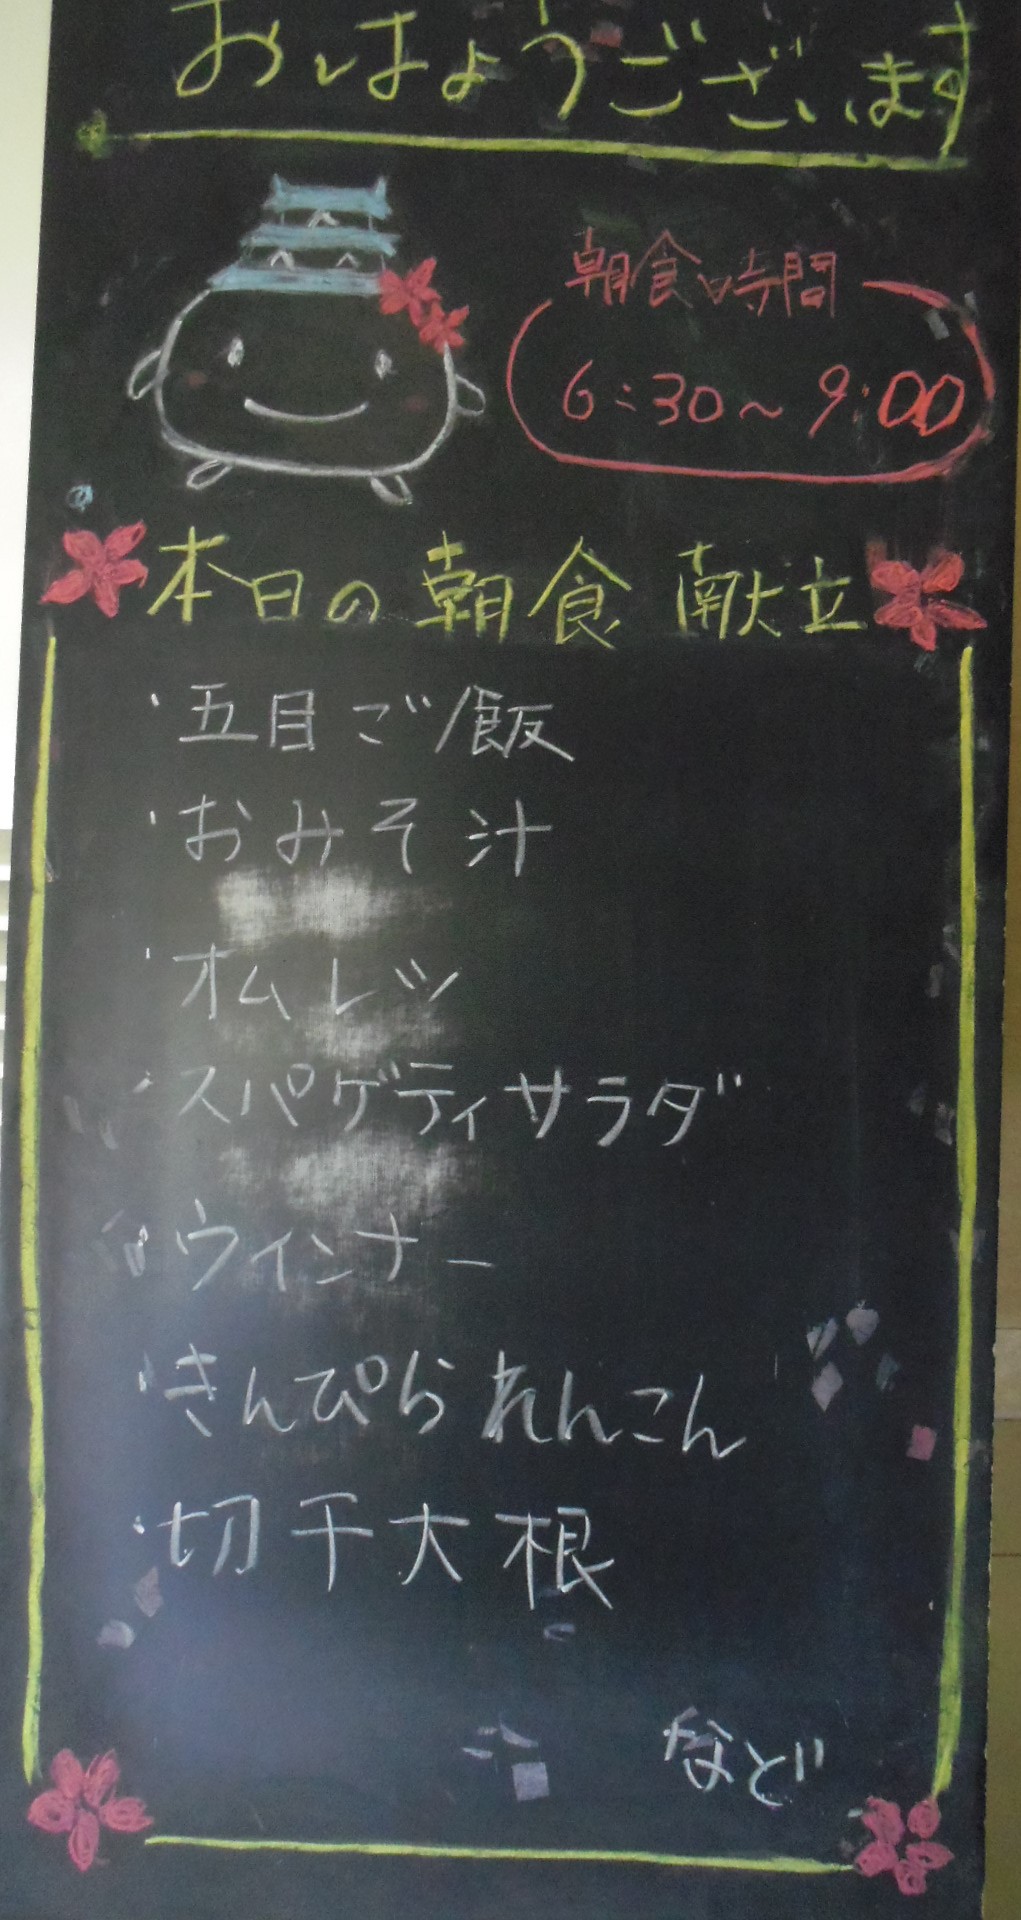 おはようございます
朝食時間
6:30～9:00
本日の朝食 献立
・五目ご飯
・おみそ汁
・オムレツ
・スパゲティサラダ
・ウインナー
・きんぴられんこん
・切干大根
など